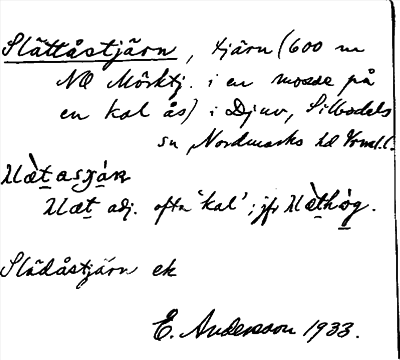 Slättåstjärn, tjärn (600 m
NO Mörktj. i en mosse på
en kal ås) i Djuv, Silbodals
sn, Nordmarks hd Vrml. l.
adj. ofta 'kal'; jfr
Slädåstjärn ek
E. Andersson 1933.